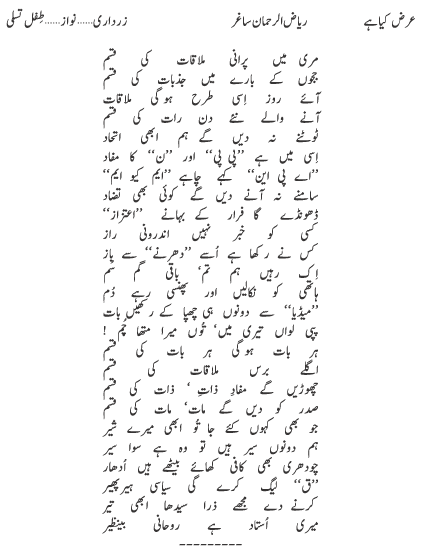 عرض کیا ہے
ریاض الرحمان ساغر
زرداری......نواز......طِفل تسلی
مری میں پرانی ملاقات کی قسم
ججوں کے بارے میں جذبات کی قسم
آئے روز اِسی طرح ہو گی ملاقات
آنے والے نئے دن رات کی قسم
ٹوٹنے نہ دیں گے ہم ابھی اتحاد
اِسی میں ہے ’’پی پی‘‘ اور ’’ن‘‘ کا مفاد
’’اے پی این‘‘ کہے چاہے ’’ایم کیو ایم‘‘
سامنے نہ آنے دیں گے کوئی بھی تضاد
ڈھونڈے گا فرار کے بہانے ’’اعتزاز‘‘
کسی کو خبر نہیں اندرونی راز
کس نے رکھا ہے اُسے ’’دھرنے‘‘ سے باز
اِک رہیں ہم تم، باقی گم سم
ہاتھی کو نکالیں اور پھنسی رہے دُم
’’میڈیا‘‘ سے دونوں ہی چھپا کے رکھیں بات
پپی لواں تیری میں، توں میرا متھا چُم !
ہر بات ہو گی ہر بات کی قسم
اگلے برس ملاقات کی قسم
چھوڑیں گے مفادِ ذات ، ذات کی قسم
صدر کو دیں گے مات، مات کی قسم
جو بھی کہوں کئے جا تُو ابھی میرے شیر
ہم دونوں سیر ہیں تو وہ ہے سوا سیر
چودھری بھی کافی کھائے بیٹھے ہیں اُدھار
’’ق‘‘ لیگ کرے گی سیاسی ہیر پھیر
کرنے دے مجھے ذرا سیدھا ابھی تیر
میری اُستاد ہے روحانی بینظیر
---------